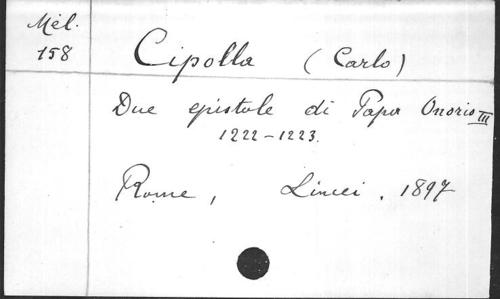 Mél.
158
Cipolla (Carlo)
Due epistole di Papa Onorio III
1222-1223.
Rome, Lincei. 1897